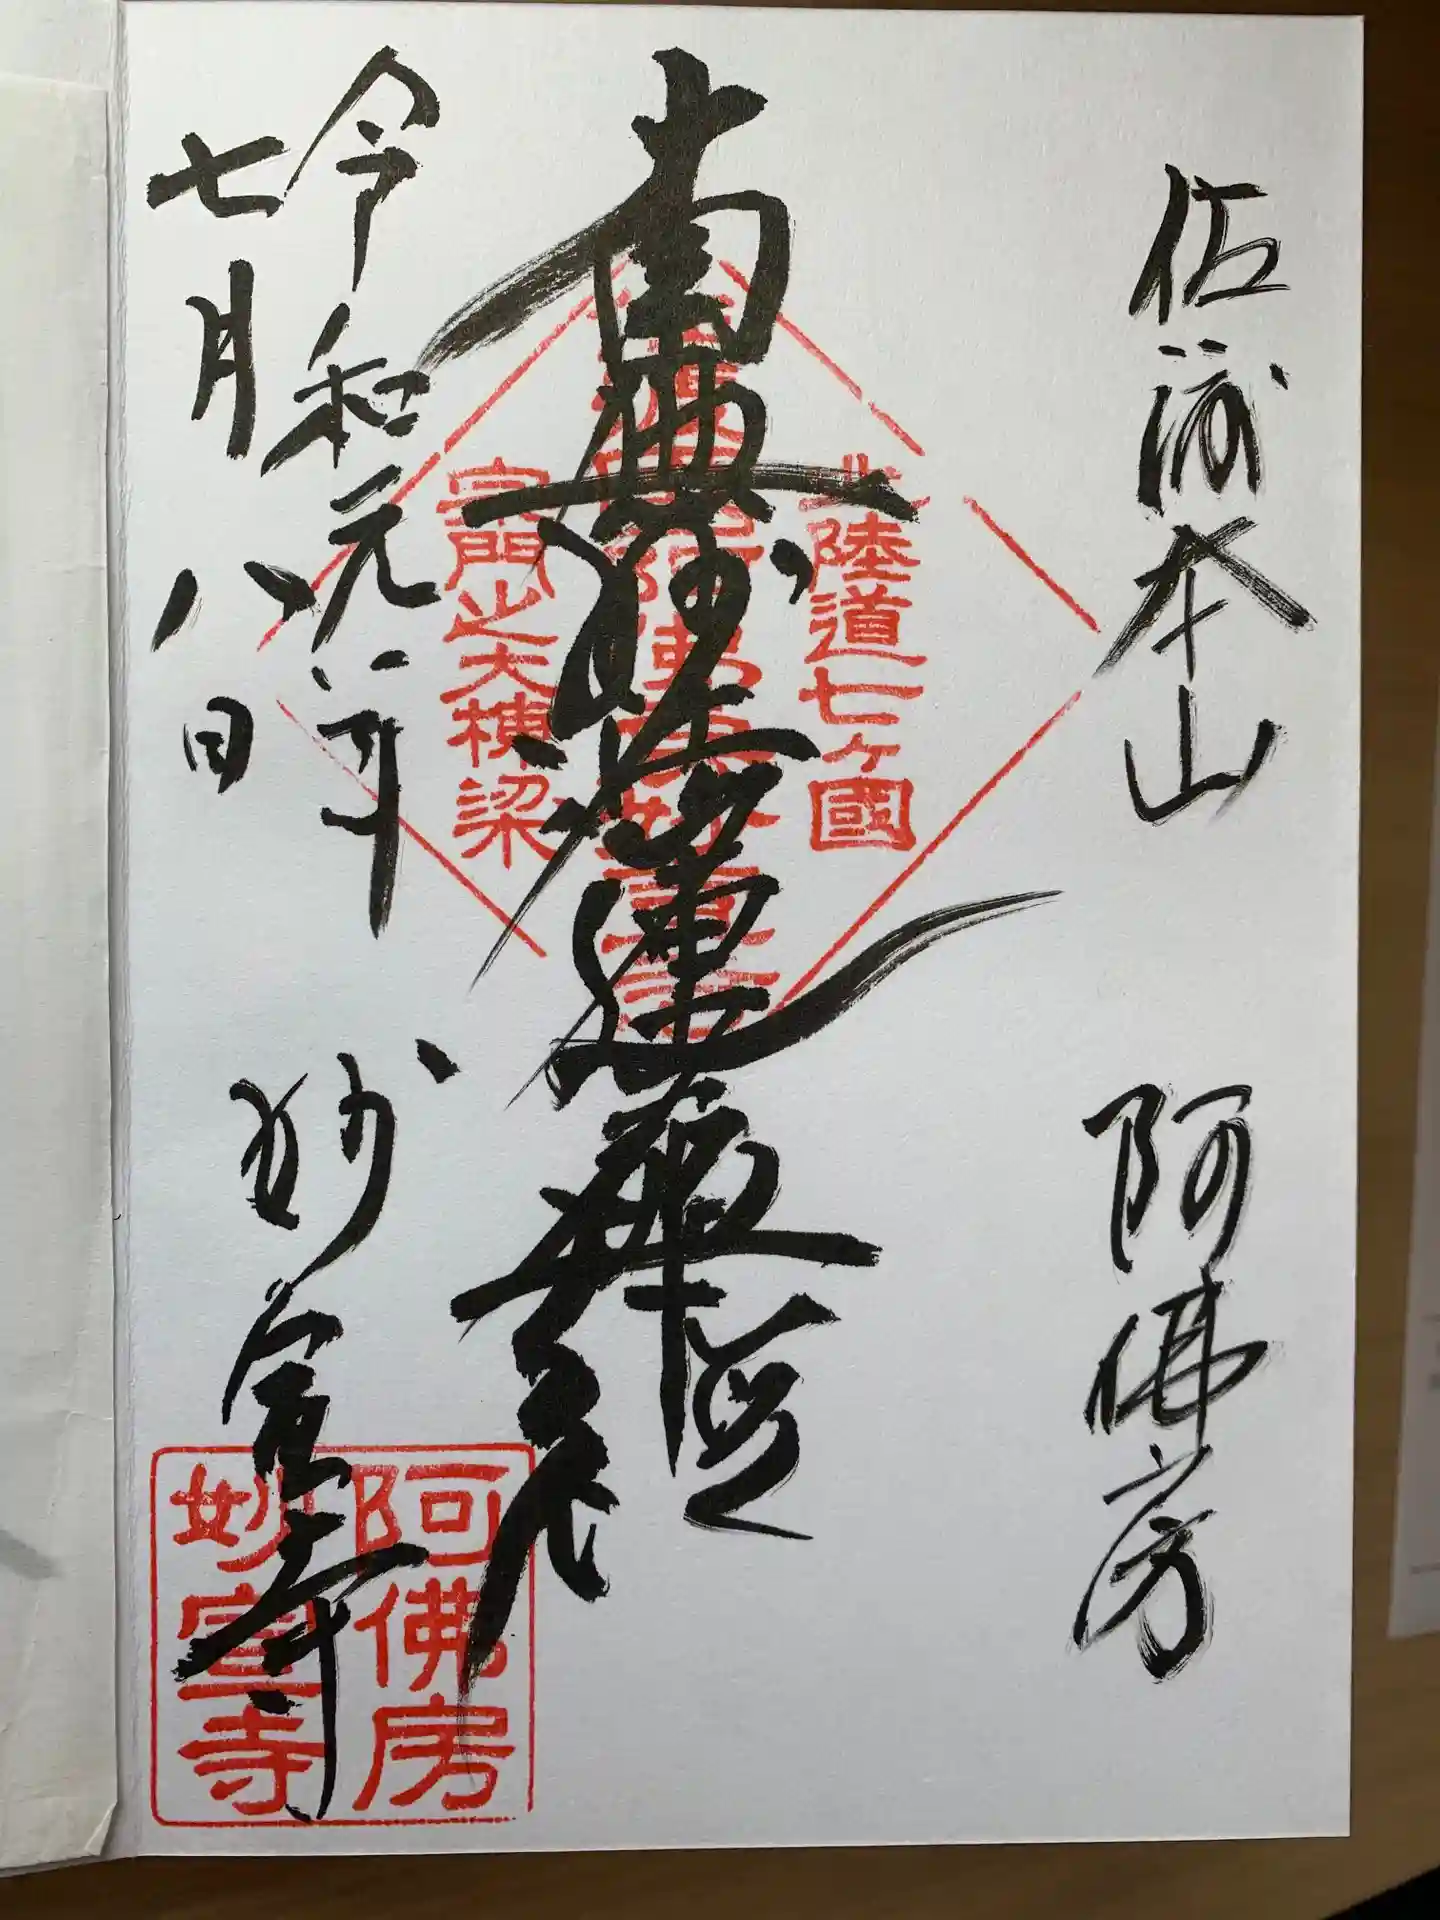 佐渡本山　阿佛房
北陸道七ヶ國
南無妙法蓮華経
宗門之大棟梁
令和元年
七月八日
妙宣寺
阿佛房
妙宣寺